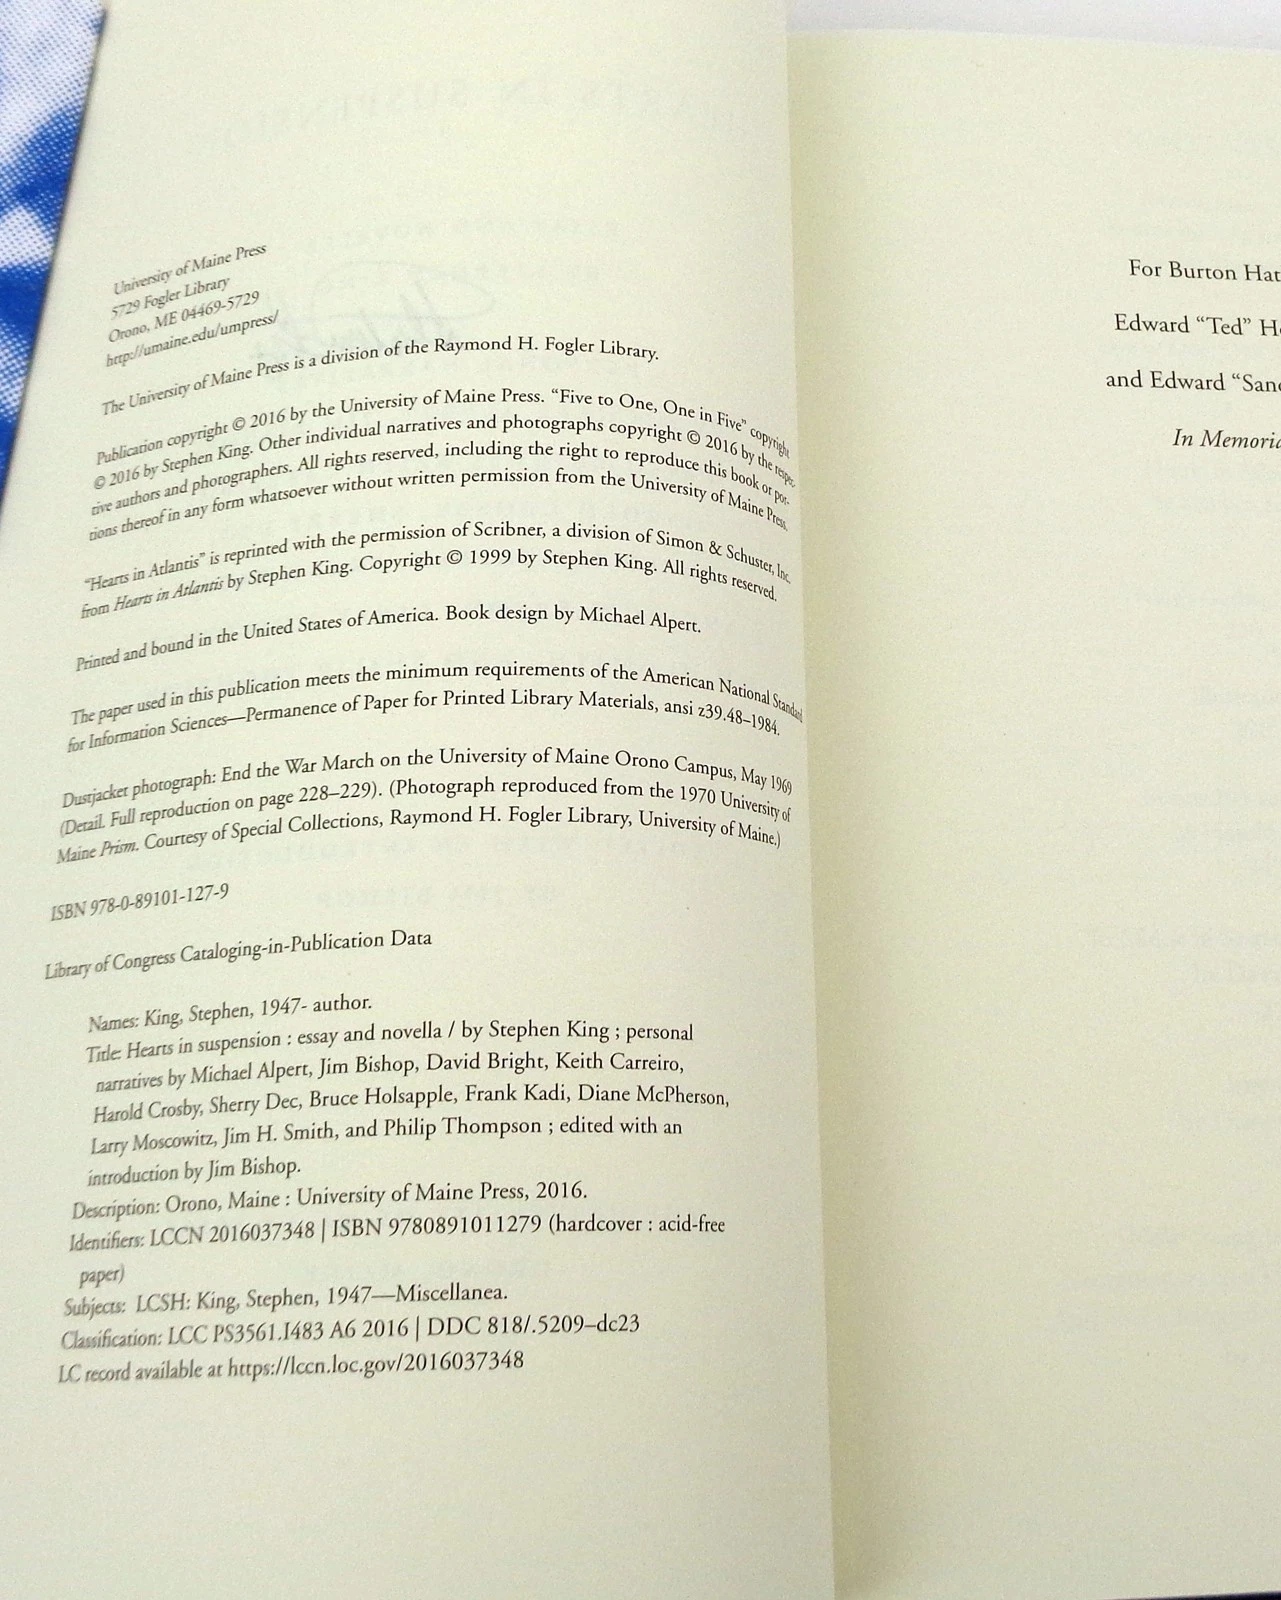 University of Maine Press
5729 Fogler Library
Orono, ME 04469-5729
http://umaine.edu/umpress/
The University of Maine Press is a division of the Raymond H. Fogler Library.
Publication copyright © 2016 by the University of Maine Press. “Five to One, One in Five” copyright
© 2016 by Stephen King. Other individual narratives and photographs copyright © 2016 by the respec-
tive authors and photographers. All rights reserved, including the right to reproduce this book or por-
tions thereof in any form whatsoever without written permission from the University of Maine Press.
“Hearts in Atlantis” is reprinted with the permission of Scribner, a division of Simon & Schuster, Inc.
from Hearts in Atlantis by Stephen King. Copyright © 1999 by Stephen King. All rights reserved.
Printed and bound in the United States of America. Book design by Michael Alpert.
The paper used in this publication meets the minimum requirements of the American National Standard
for Information Sciences—Permanence of Paper for Printed Library Materials, ansi z39.48–1984.
Dustjacket photograph: End the War March on the University of Maine Orono Campus, May 1969
(Detail. Full reproduction on page 228–229). (Photograph reproduced from the 1970 University of
Maine Prism. Courtesy of Special Collections, Raymond H. Fogler Library, University of Maine.)
ISBN 978-0-89101-127-9
Library of Congress Cataloging-in-Publication Data
Names: King, Stephen, 1947- author.
Title: Hearts in suspension : essay and novella / by Stephen King ; personal
narratives by Michael Alpert, Jim Bishop, David Bright, Keith Carreiro,
Harold Crosby, Sherry Dec, Bruce Holsapple, Frank Kadi, Diane McPherson,
Larry Moscowitz, Jim H. Smith, and Philip Thompson ; edited with an
introduction by Jim Bishop.
Description: Orono, Maine : University of Maine Press, 2016.
Identifiers: LCCN 2016037348 | ISBN 9780891011279 (hardcover : acid-free
paper)
Subjects: LCSH: King, Stephen, 1947—Miscellanea.
Classification: LCC PS3561.I483 A6 2016 | DDC 818/.5209–dc23
LC record available at https://lccn.loc.gov/2016037348
For Burton Hat
Edward “Ted” H
and Edward “San
In Memoria